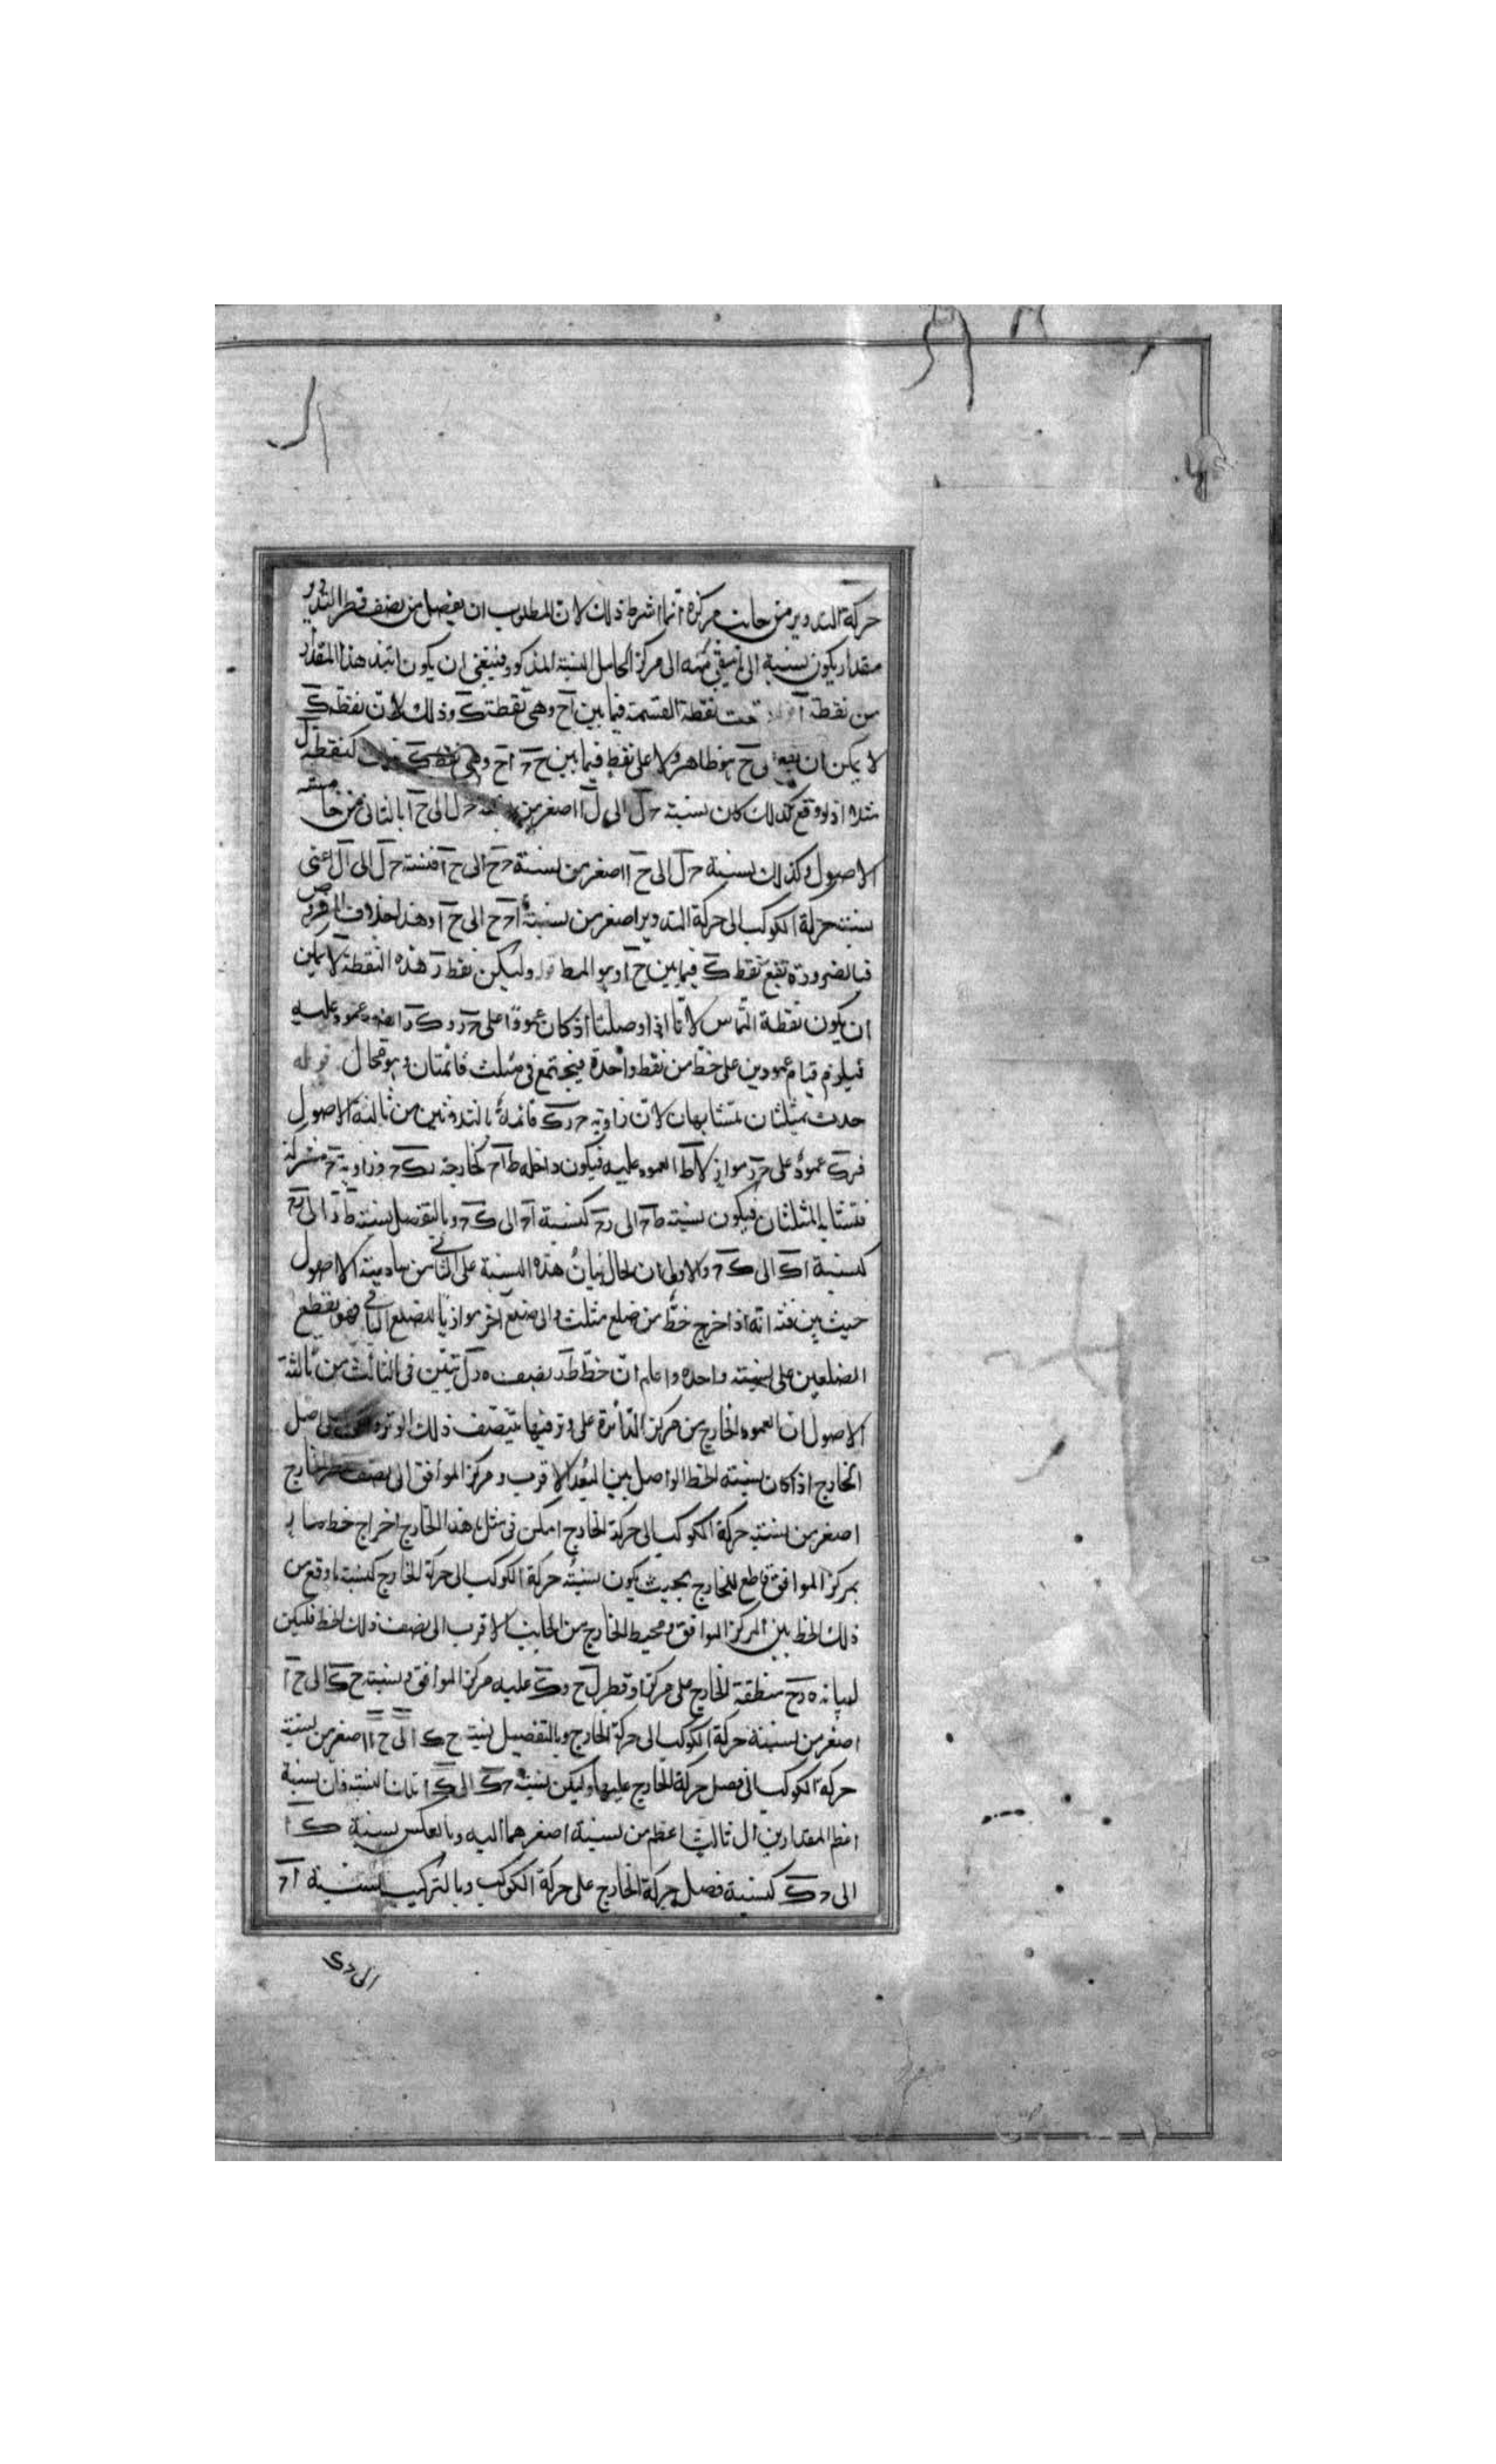 حركة التدوير من جانب مركزه انما اشرط ذلك لان المطلوب ان يفصل من نصف قطر التدوير
مقدار يكون نسبة الى ما يبقى منه الى مركز الحامل النسبة المذكورة فينبغى ان يكون ابتد هذا المقدار
من نقطة آ نقطة القسمة فيما بين آح وهى نقطة ک وذلك لان نقطة ک
لا يمكن ان يقع على ح هو ظاهر ولا على نقط فيما بين ح آح وهى كنقطة ل
مثلا اذ لو وقع كذلك كان نسبة حل الى ل ا اصغر من نسبة حل الى ح ا بالثانى من خامسة
الاصول وكذلك نسبة حل الى ح ا اصغر من نسبة حح الى ح ا فنسبة حل الى آل اعنى
نسبة حركة الكوكب الى حركة التدوير اصغر من نسبة ح الى ح آ وهذا خلاف المفروض
فبالضرورة تقع نقط ک فيما بين ح آ وهو المط وليكن نقطة ر هذه النقطة لا يمكن
ان يكون نقطة التماس لانا اذا وصلنا از كان عمودا على حر و ک ر ايضا عمود عليه
فيلزم قيام عمودين على خط من نقط واحدة فيجتمع فى مثلث قائمتان وهو محال قوله
حدث مثلثان متشابهان لان زاوية حرک قائمة بالتدوثين من ثالثة الاصول
فرک عمود على حر مواز لاط العمود عليه فيكون داخله طاح كخارجة رک ح وزاوية ح مشتركة
فتشابه المثلثان فيكون نسبة طح الى رح كنسبة آح الى ک ح وبالتفصيل نسبة طر الى رح
كنسبة اک الى ک ح والاولى ان يحال بيان هذه النسبة على الثانى من سادسة الاصول
حيث بين فيه انه اذا اخرج خط من ضلع مثلث والى ضلع آخر موازيا للضلع الباقى فهو يقطع
الضلعين على نسبة واحدة واعلم ان خط طر نصف ه ر ل تبين فى الثالث من ثالثة
الاصول ان العمود الخارج من مركز الدائرة على وتر فيها ينصف ذلك الوتر على اصل
الخارج اذا كان نسبة الخط الواصل بين البعد الاقرب ومركز الموافق الى نصف قطر الخارج
اصغر من نسبة حركة الكوكب الى حركة الخارج امكن فى مثل هذا الخارج اخراج خط مار
بمركز الموافق قاطع للخارج بحيث يكون نسبة حركة الكوكب الى حركة الخارج كنسبة ما وقع من
ذلك الخط بين المركز الموافق ومحيط الخارج من الجانب الاقرب الى نصف ذلك الخط فليكن
لبيانه ه رح منطقة الخارج على مركز ا وقطر ل ح و ک عليه مركز الموافق ونسبة ح ک الى ح آ
اصغر من نسبة حركة الكوكب الى حركة الخارج وبالتفصيل نسبة ح ک الى ح اا اصغر من نسبة
حركة الكوكب الى فضل حركة الخارج عليها وليكن نسبة ح ک الى ک ا تلك النسبة فان نسبة
اعظم المقدارين الى ثالث اعظم من نسبة اصغرهما اليه وبالعكس نسبة ک ا
الى ح ک كنسبة فضل حركة الخارج على حركة الكوكب وبالتركيب نسبة اح
الى حک